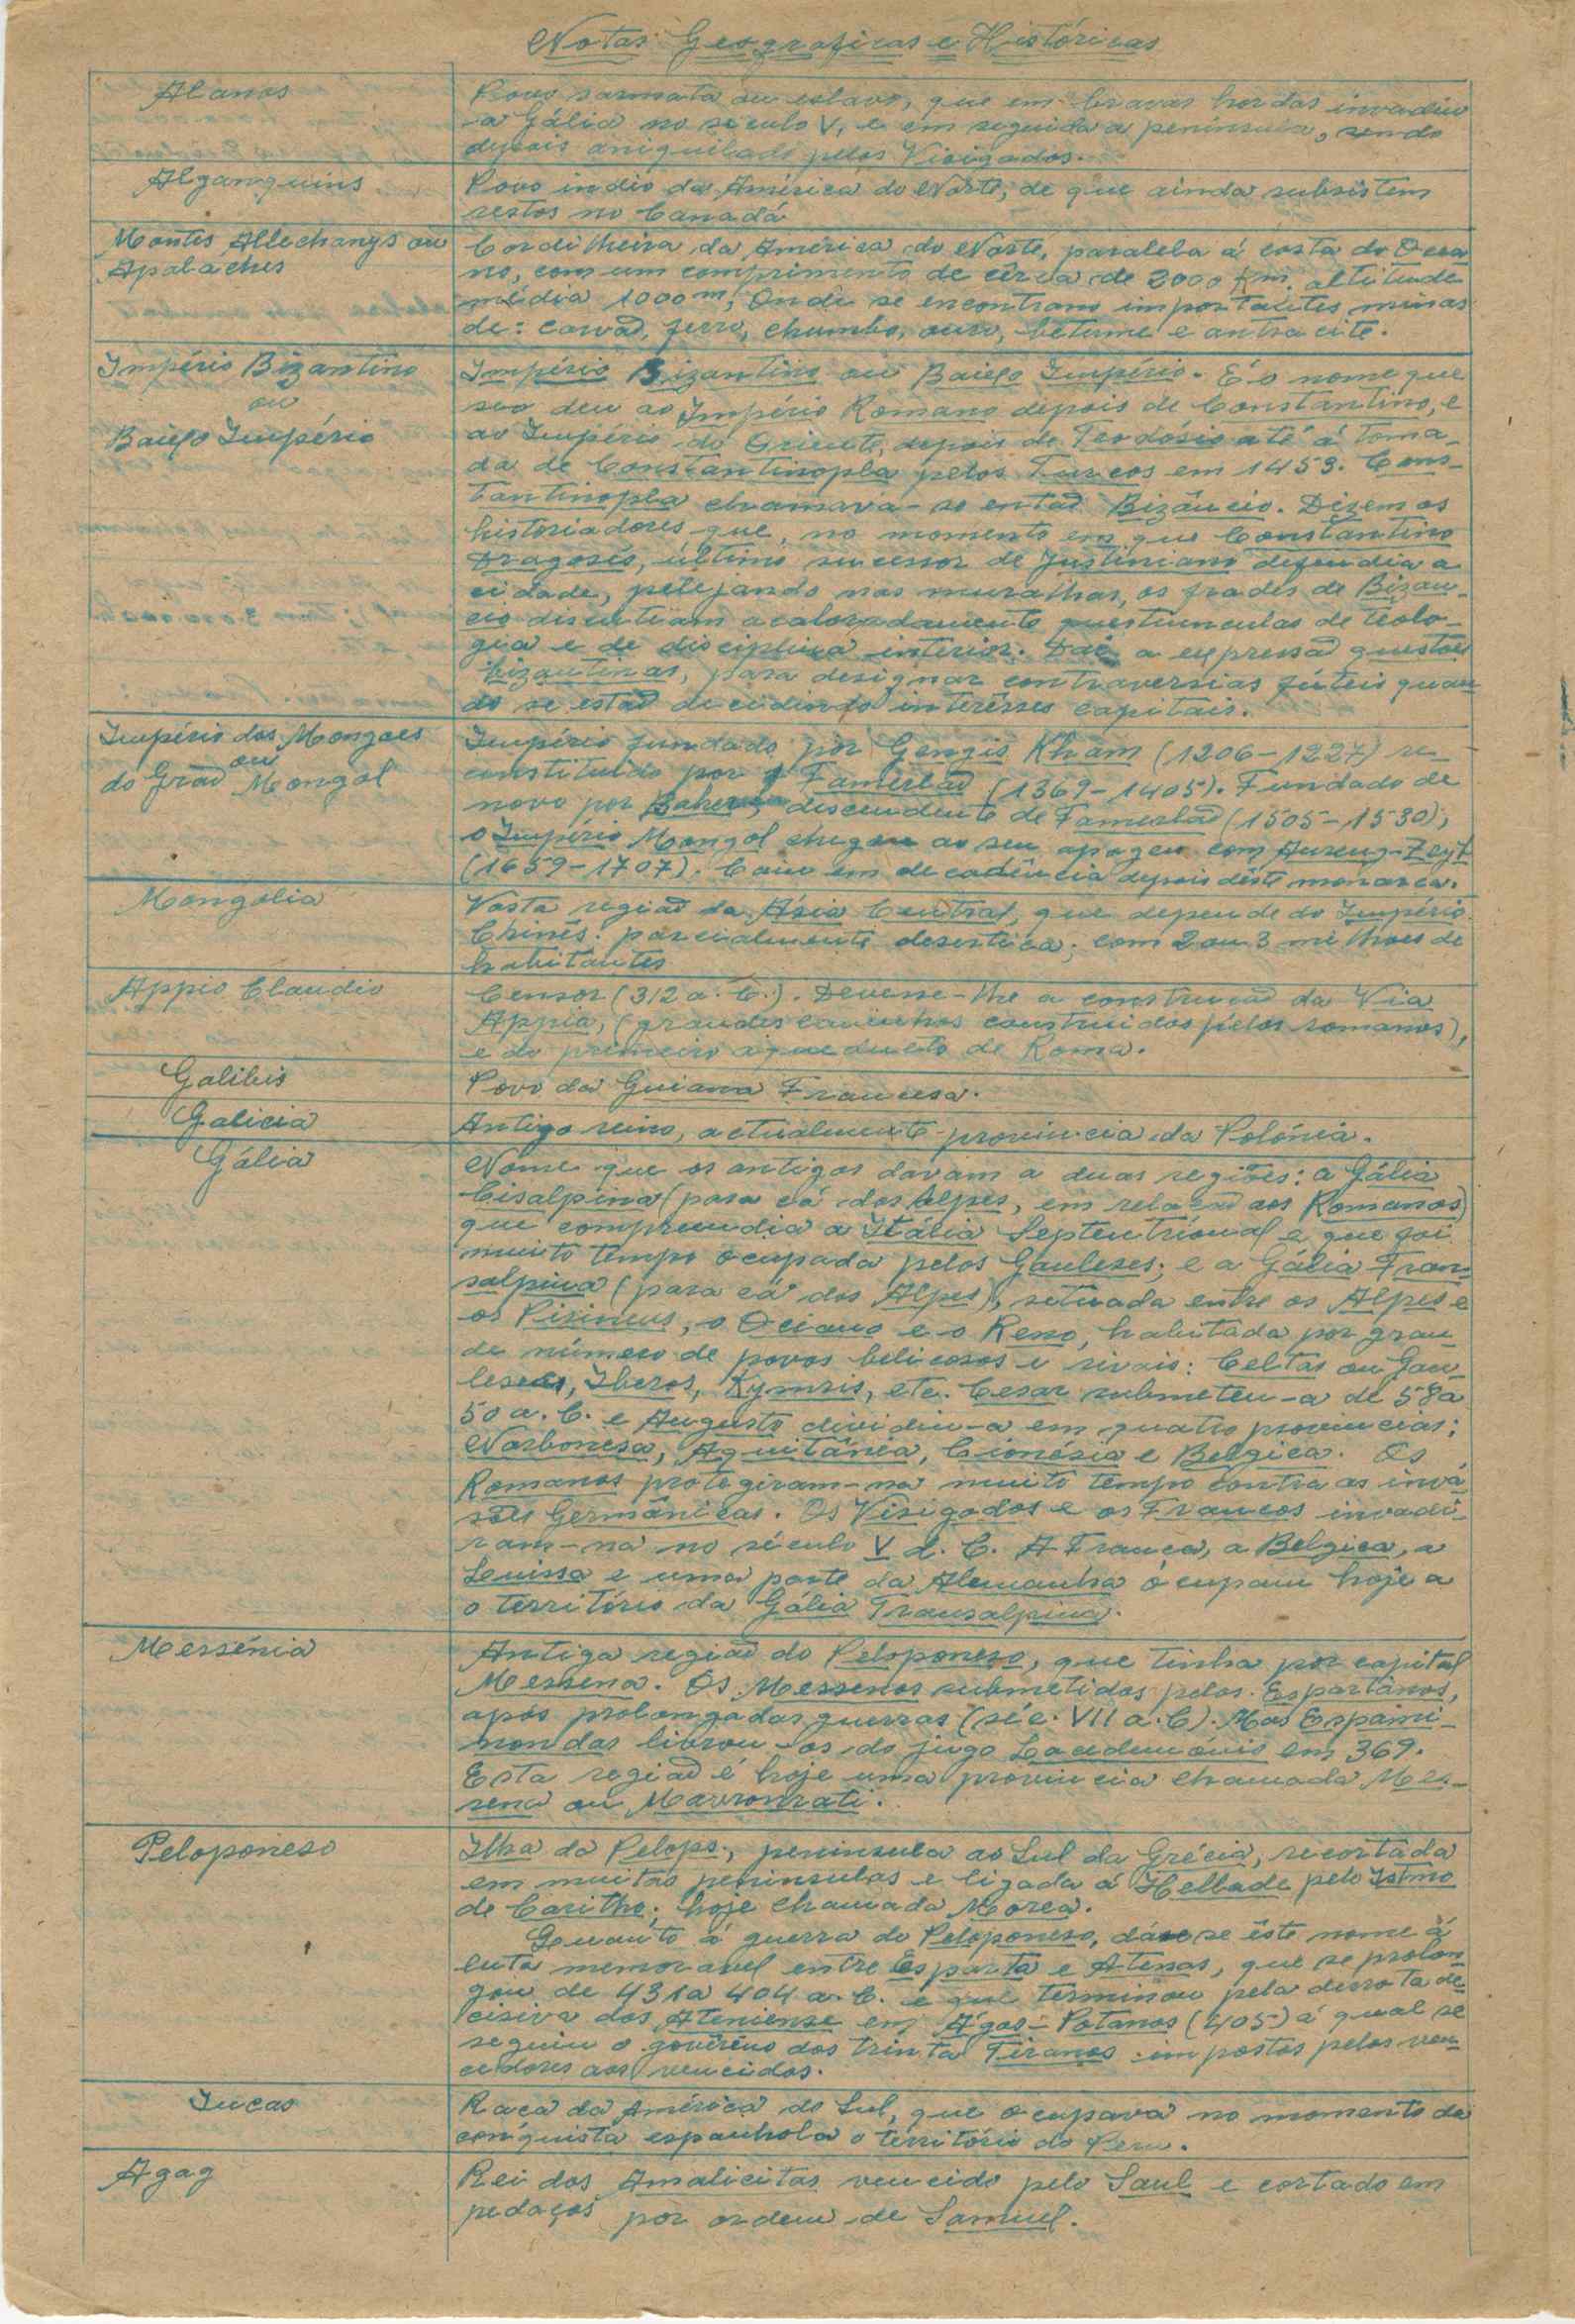 Notas Geograficas e Históricas
Alanos
Povo sarmata ou eslavo, que em bravas hordas invadiu
a Gália no século V, e em seguida a península, sendo
depois aniquilado pelos Visigodos.
Algonquins
Povo indio da América do Norte, de que ainda subsistem
restos no Canadá
Montes Alleghanys ou
Apalaches
Cordilheira da América do Norte, paralela á costa do Ocea
no, com um comprimento de cêrca de 2000 Km. altitude
média 1000m; Onde se encontram importantes minas
de: carvão, ferro, chumbo, ouro, betume e antracite.
Império Bizantino
ou
Baixo Império
Império Bizantino ou Baixo Império. É o nome que
se deu ao Império Romano depois de Constantino, e
ao Império do Oriente, depois de Teodósio até á toma_
da de Constantinopla pelos Turcos em 1453. Cons_
tantinopla chamava-se então Bizâncio. Dizem os
historiadores que, no momento em que Constantino
Dragosés, último sucessor de Justiniano defendia a
cidade, pelejando nas muralhas, os frades de Bizan_
cio discutiam acaloradamente questiunculas de teolo_
gia e de disciplina interior. Daí a expressão questões
bizantinas, para designar contraversias fúteis quan
do se estão decidindo interêsses capitais.
Império dos Mongoes
ou
do Grão Mongol
Império fundado por Gengis Kham (1206-1227) re_
constituido por Tamerlão (1369-1405). Fundado de
novo por Baher, descendente de Tamerlão (1505-1530);
o Império Mongol chegou ao seu apogeu com Aureng-Zeyt
(1659-1707). Caiu em decadência depois dêste monarca.
Mongolia
Vasta região da Ásia Central, que depende do Império
Chinês: parcialmente desertica; com 2 ou 3 milhoes de
habitantes
Appio Claudio
Censor (312 a. C.). Devesse-lhe a construção da Via
Appia, (grandes caminhos construidos pelos romanos),
e do primeiro aqueducto de Roma.
Galibis
Povo da Guiana Francesa.
Galicia
Antigo reino, actualmente provincia da Polónia.
Gália
Nome que os antigos davam a duas regiões: a Gália
Cisalpina (para cá dos Alpes, em relação aos Romanos)
que compreendia a Itália Septentrional e que foi
muito tempo ocupada pelos Gauleses; e a Gália Tran_
salpina (para cá dos Alpes), situada entre os Alpes e
os Pirineus, o Oceano e o Reno, habitada por gran_
de número de povos belicosos e rivais: Celtas ou Gau_
leses, Iberos, Kymris, etc. Cesar submeteu-a de 58 a
50 a. C. e Augusto dividiu-a em quatro provincias;
Narbonesa, Aquitánia, Cionésia e Belgica. Os
Romanos protegiram-na muito tempo contra as invá
sões Germânicas. Os Visigodos e os Francos invadi_
ram-na no século V d. C. A França, a Belgica, a
Suissa e uma parte da Alemanha ocupam hoje a
o território da Gália Transalpina.
Messénia
Antiga região do Peloponeso, que tinha por capital
Messena. Os Messenos submetidos pelos Espartanos,
após prolongadas guerras (séc. VII a. C). Mas Espami_
nondas livrou-os do jugo Lacedemónio em 369.
Esta região é hoje uma provincia chamada Mes_
sena ou Mavromati.
Peloponeso
Ilha da Pelops, peninsula ao Sul da Grécia, recortada
em muitas peninsulas e ligada á Hellade pelo Istmo
de Corintho; hoje chamada Morea.
Quanto á guerra do Peloponeso, dá-se êste nome á
luta memoravel entre Esparta e Atenas, que se prolon_
gou de 431 a 404 a. C. e que terminou pela derrota de_
cisiva dos Ateniense em Ágos-Potamos (405) á qual se
seguiu o govêrno dos trinta Tiranos impostos pelos ven_
cedores aos vencidos.
Incas
Raça da América do Sul, que ocupava no momento da
conquista espanhola o território do Peru.
Agag
Rei dos Amalicitas vencido pelo Saul e cortado em
pedaços por ordem de Samuel.